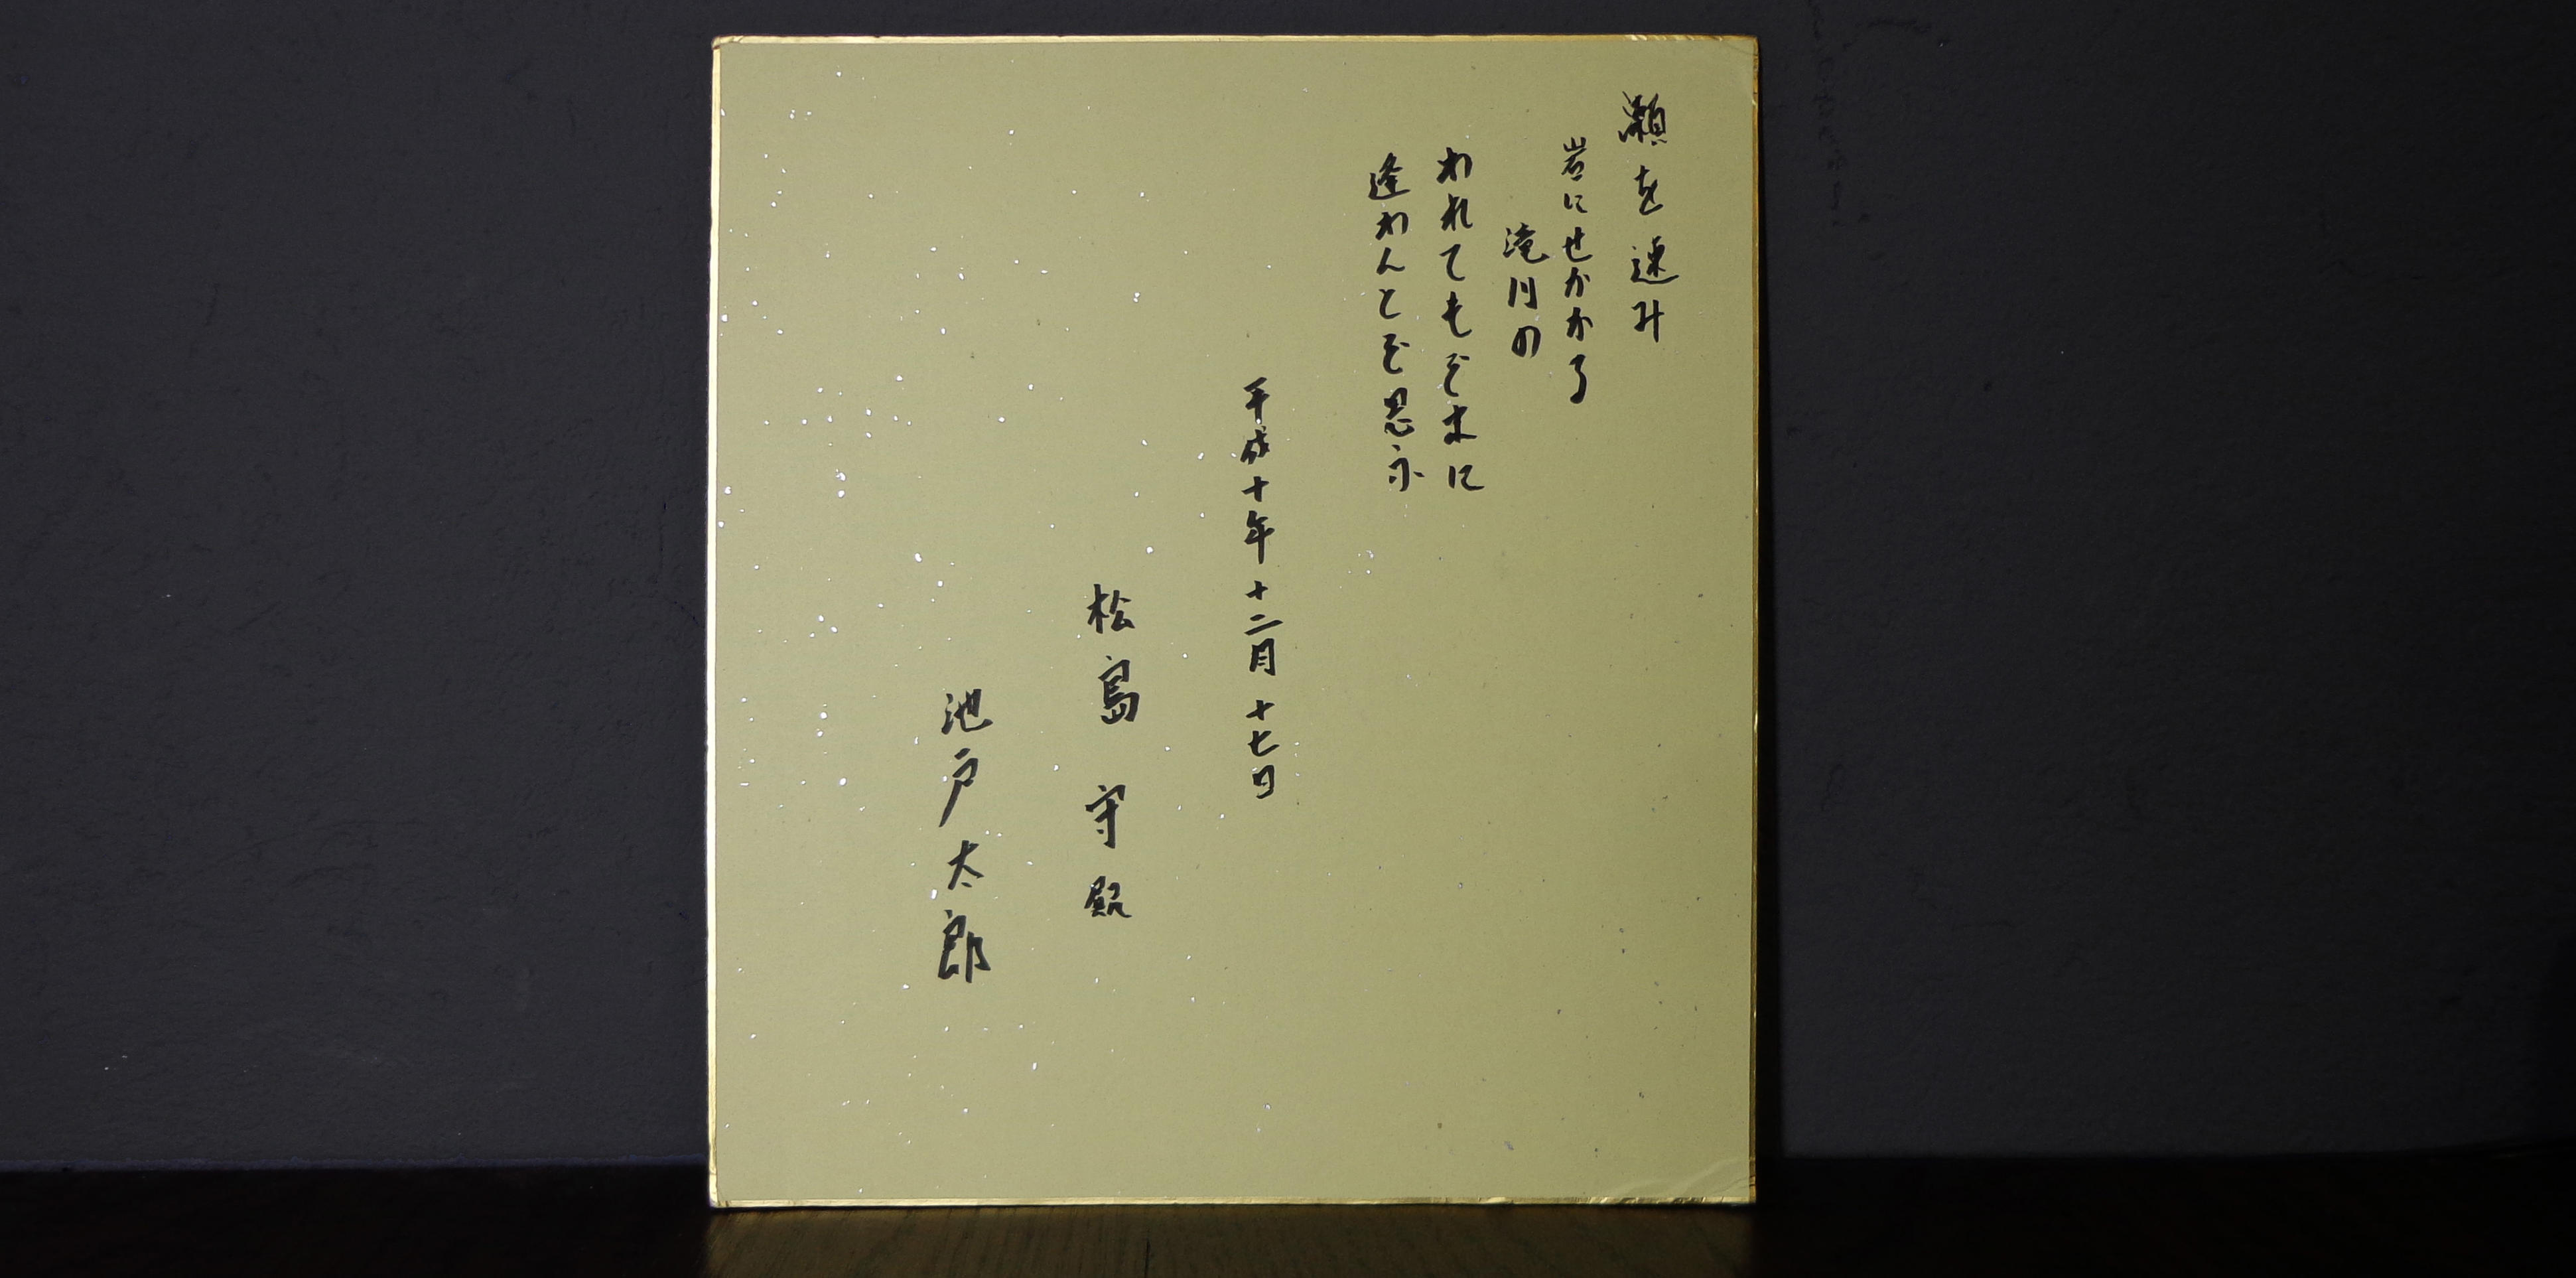 瀬を速み
岩にせかかる
滝川の
われてもぞ末に
逢わんとぞ思ふ
平成十年十二月十七日
松島 守殿
池戸太郎